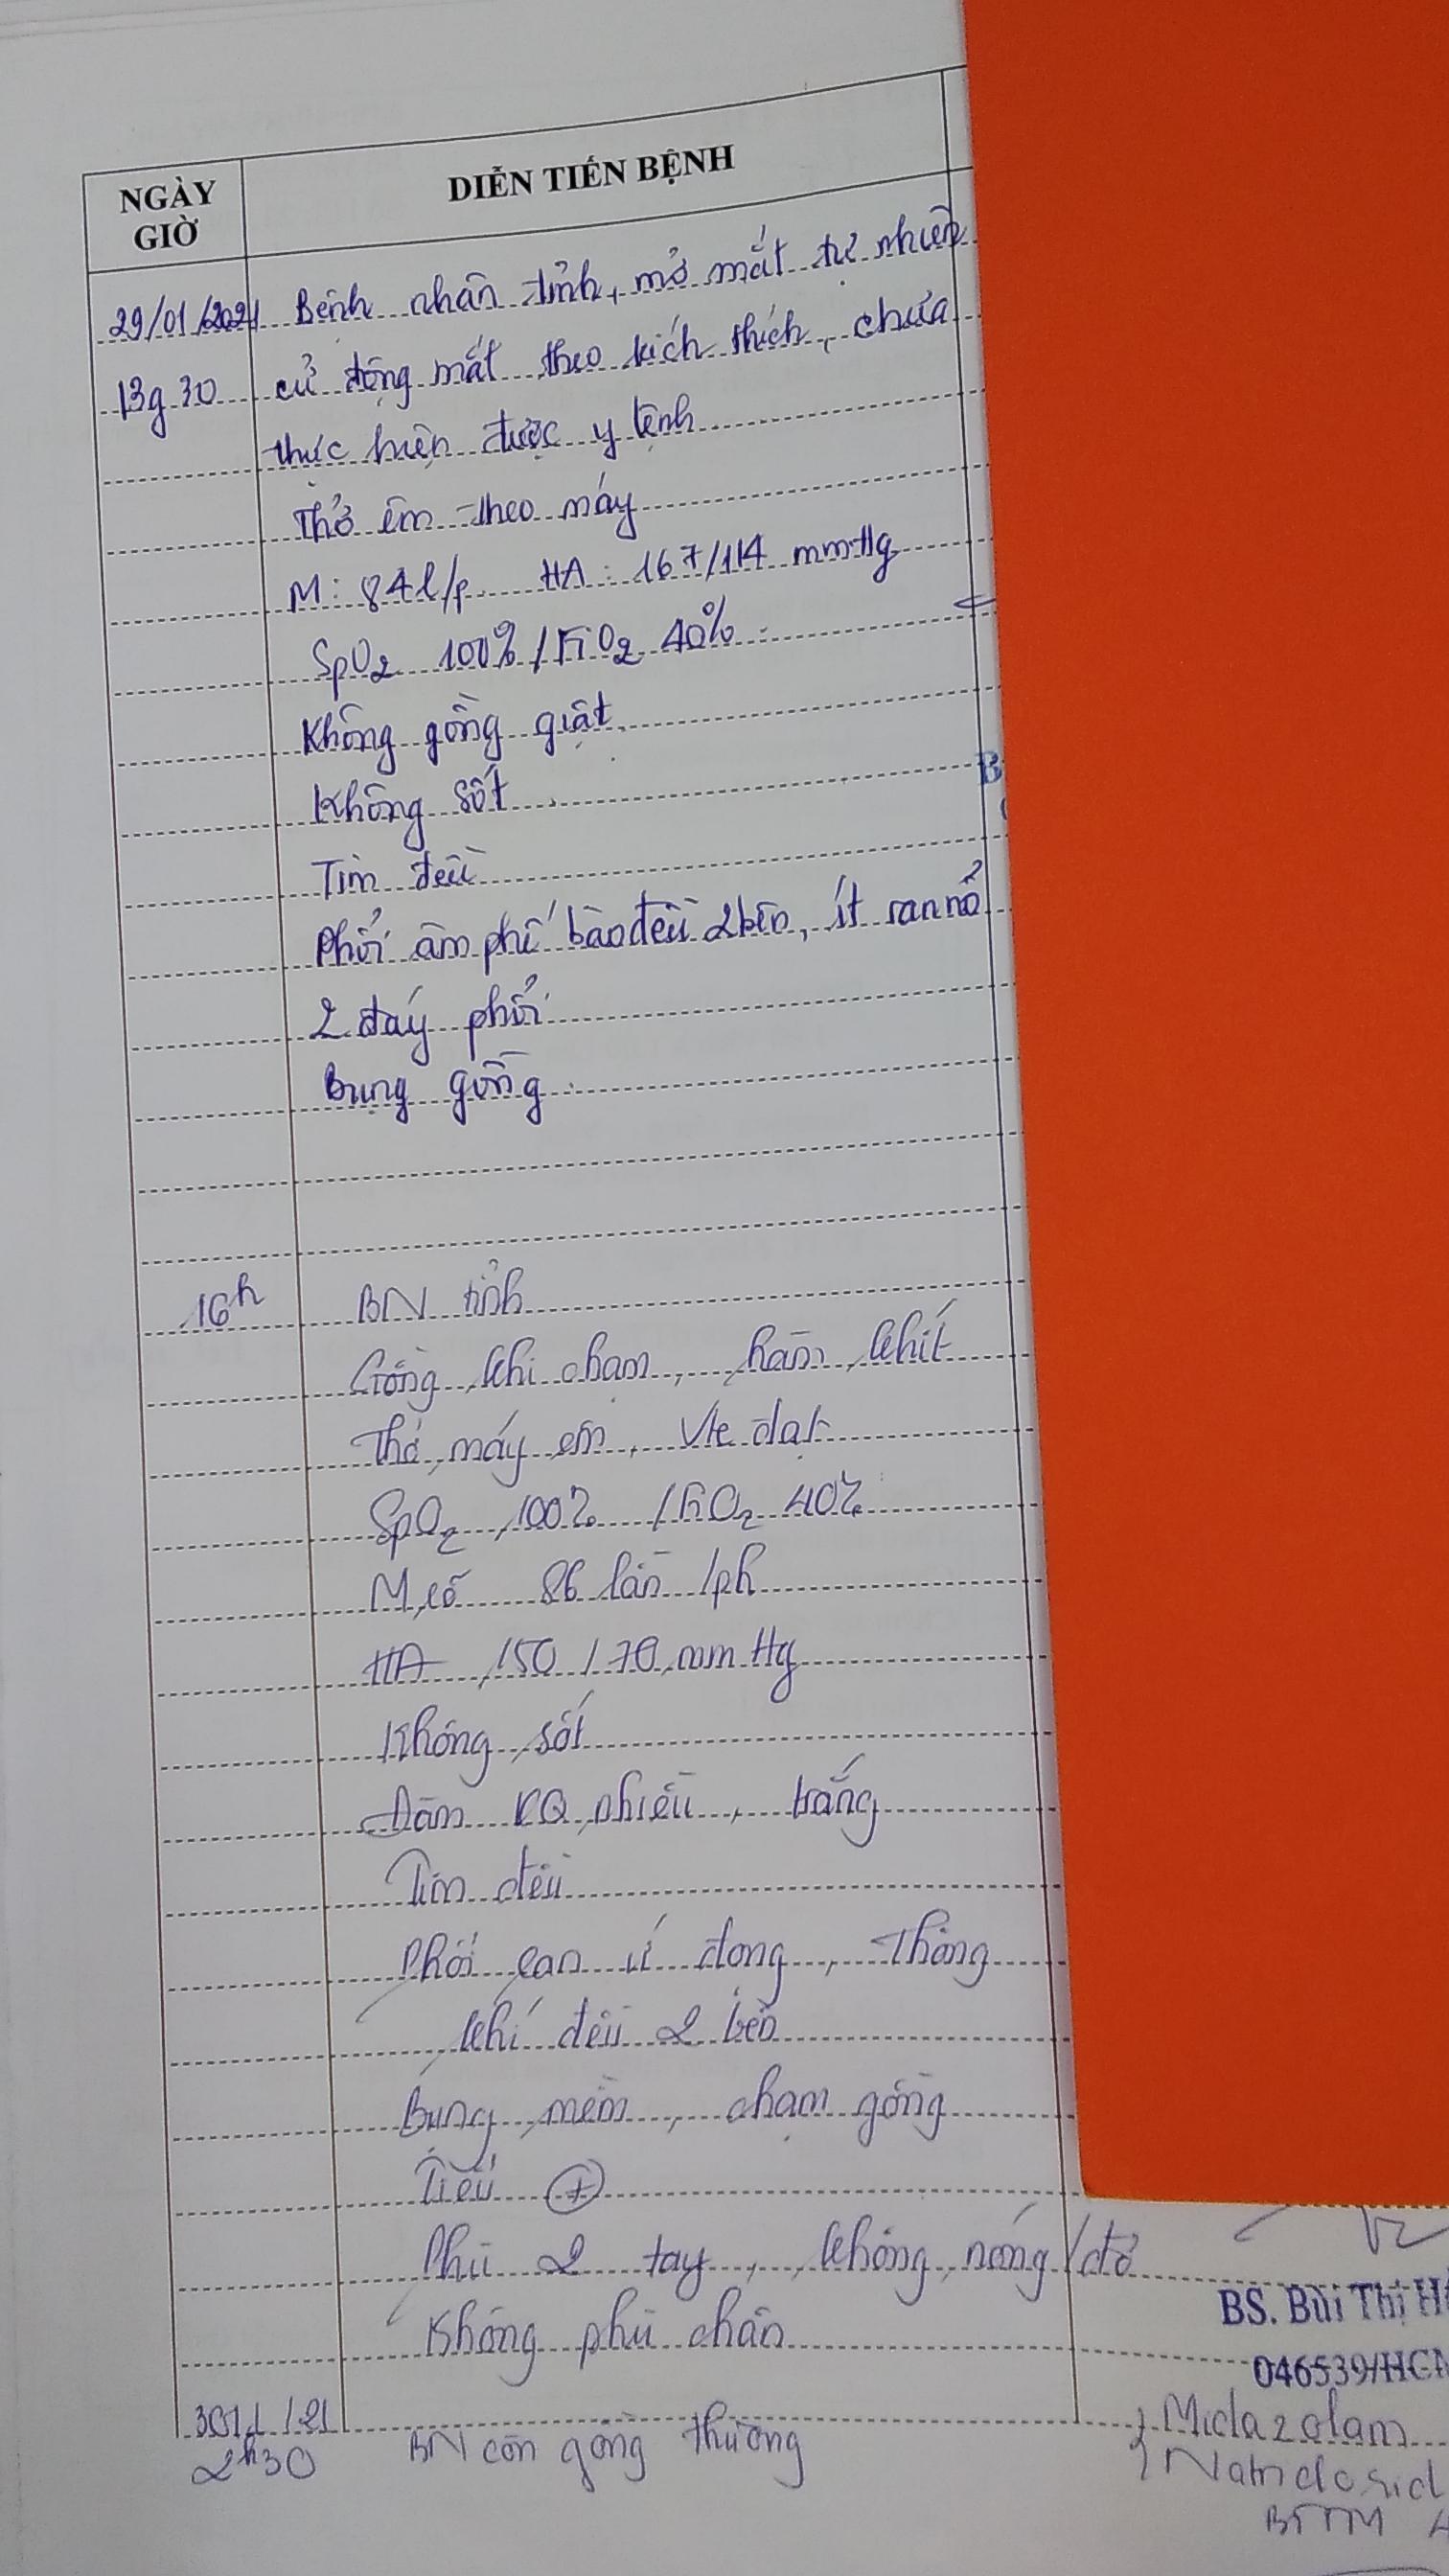 NGÀY GIỜ
DIỄN TIẾN BỆNH
29/01/2021 Bệnh nhân tỉnh, mở mắt tự nhiên
13g30 cử động mắt theo kích thích, chưa
thực hiện được y lệnh
Thở êm theo máy
M: 84 l/p HA: 167/114 mmHg
SpO2 100% / FiO2 40%
Không gồng giật
Không sốt
Tim đều
Phổi âm phế bào đều 2 bên, ít ran nổ
2 đáy phổi
Bụng gồng
16h BN tỉnh
Gồng khi chạm, hàm khít
Thở máy êm, Vte đạt
SpO2 100% / FiO2 40%
M cổ 86 lần /ph
HA 150 / 70 mmHg
Không sốt
Đàm KQ nhiều, trắng
Tim đều
Phổi ran ứ đọng, Thông
khí đều 2 bên
Bụng mềm, chạm gồng
Tiểu (+)
Phù 2 tay, không nóng / đỏ
Không phù chân
BS. Bùi Thị H
046539/HCM
30/1/21
2h30 BN còn gồng thường
Midazolam
BTTM